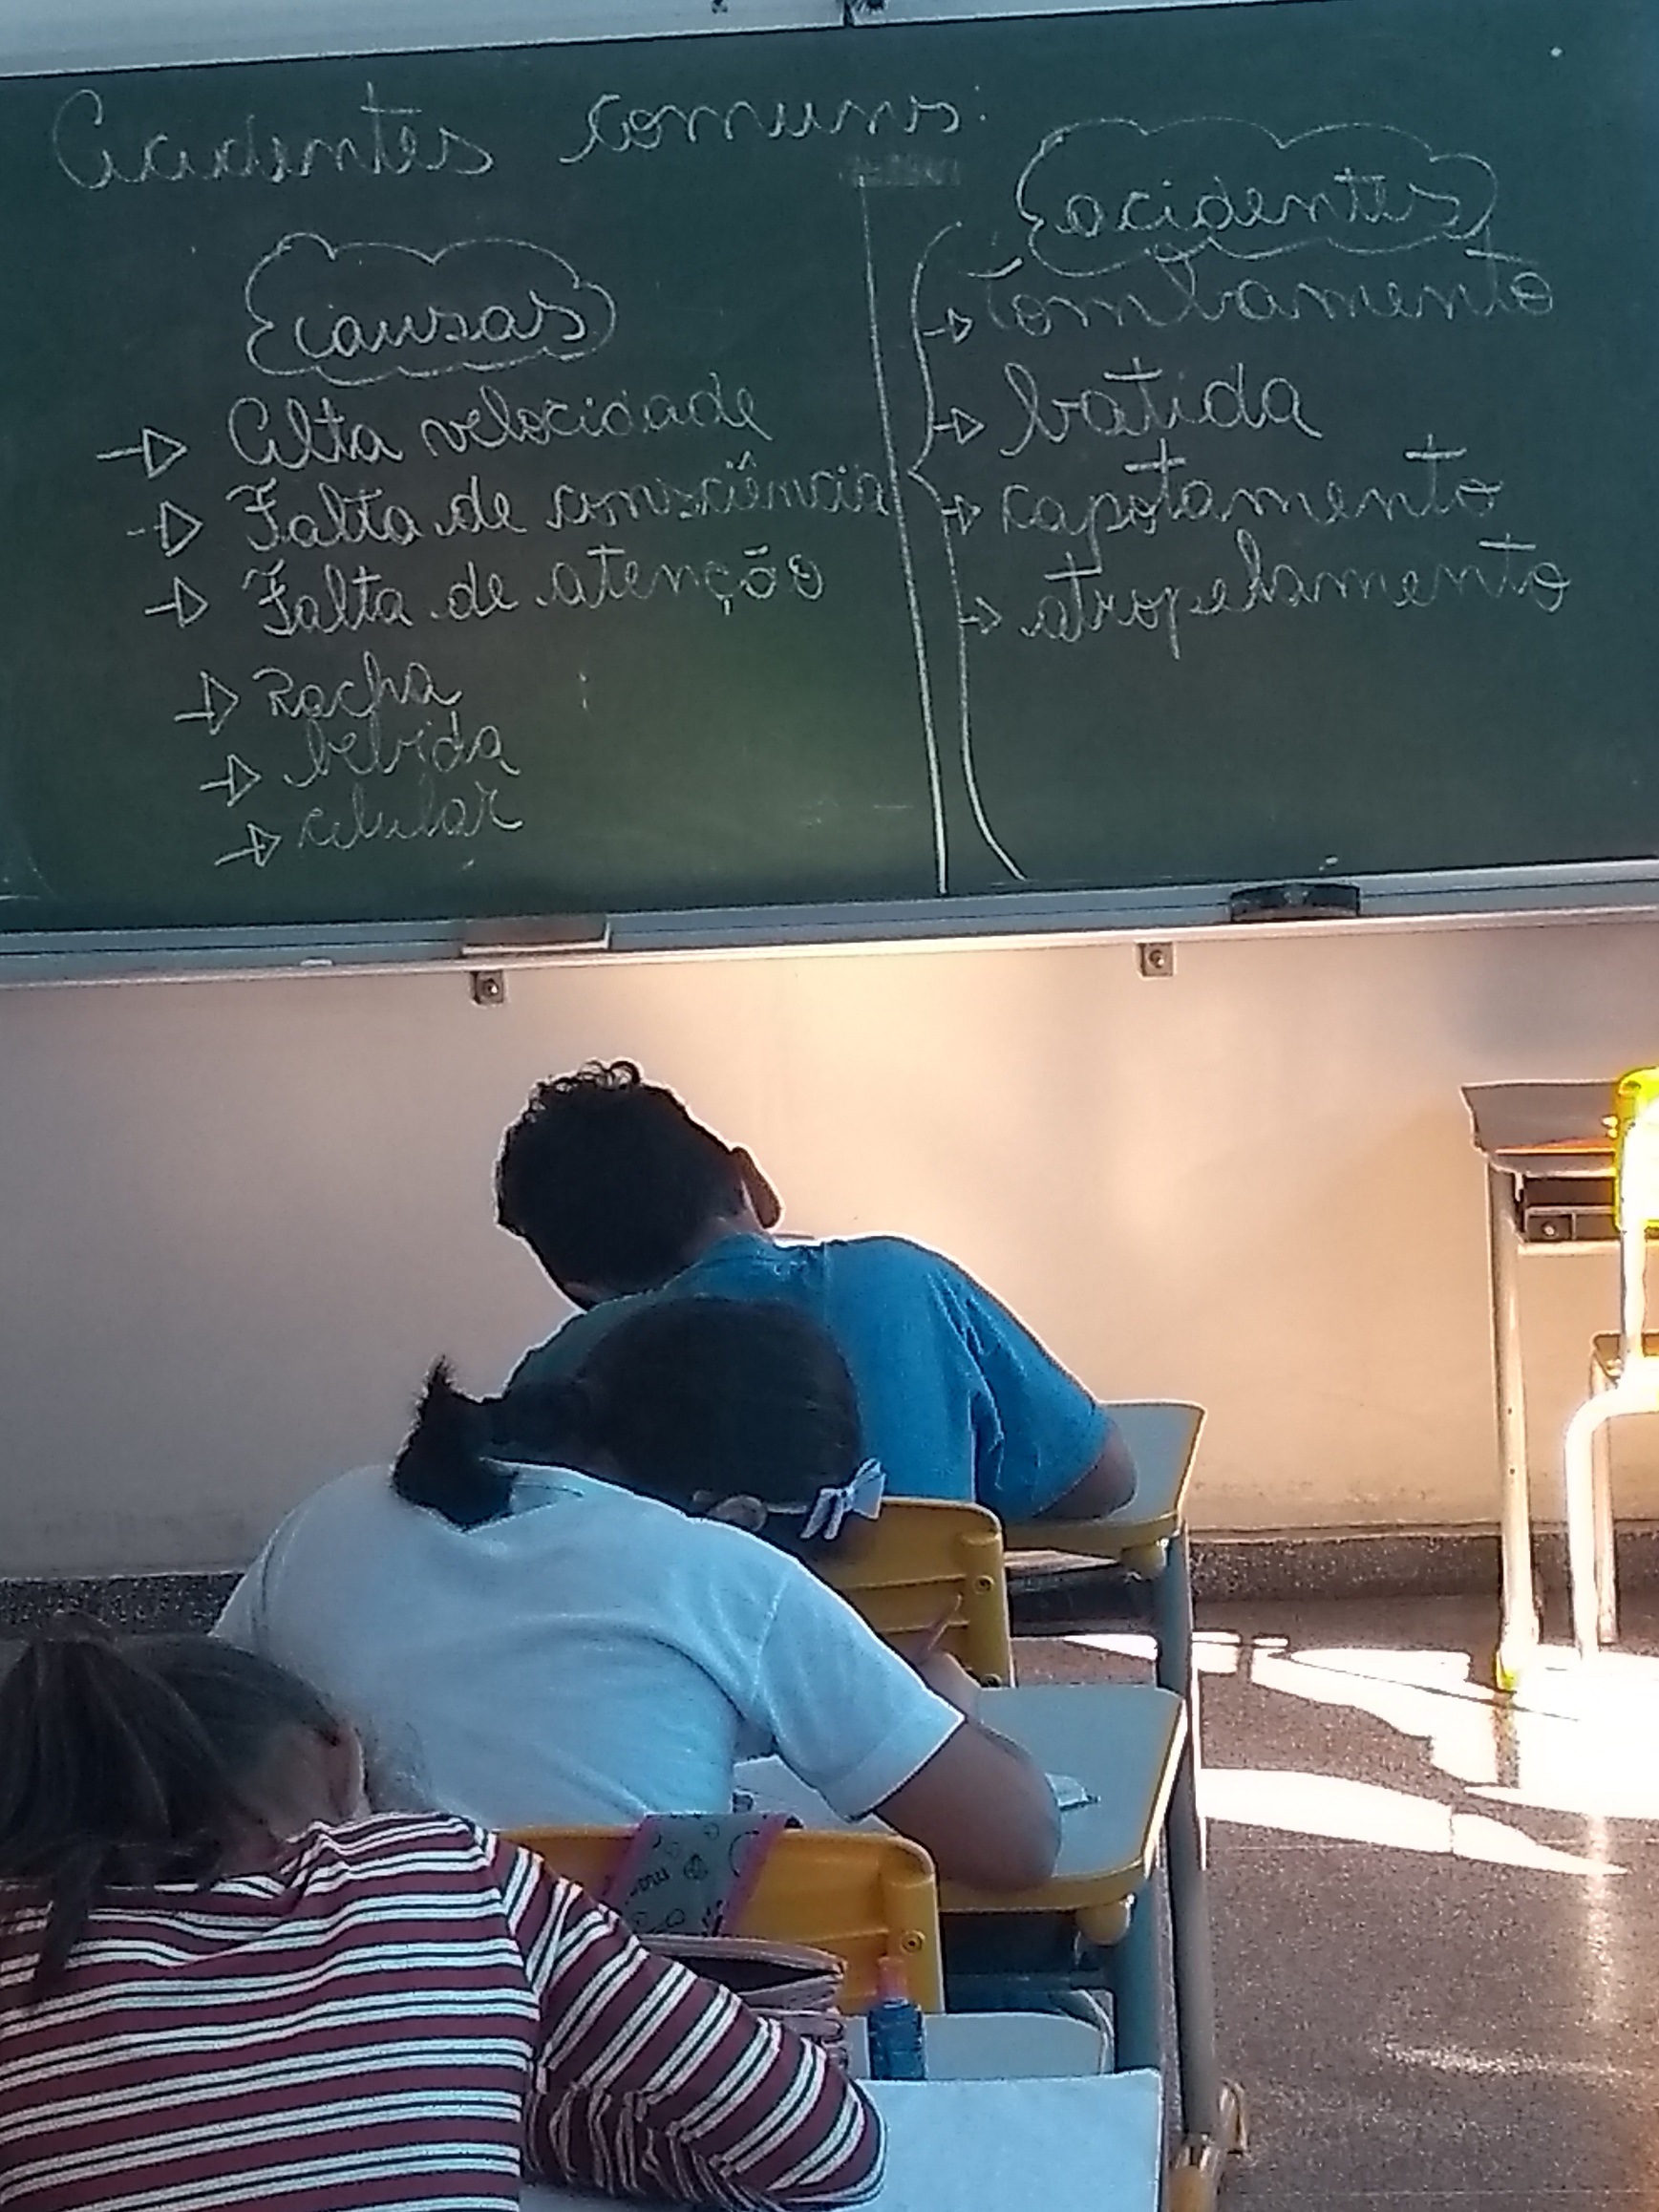 Acidentes comuns:
causas
→ Alta velocidade
→ Falta de consciência
→ Falta de atenção
→ Racha
→ bebida
→ celular
acidentes
→ Tombamento
→ batida
→ capotamento
→ atropelamento